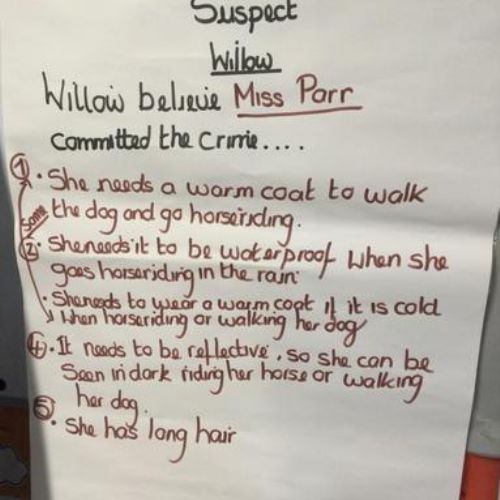 Suspect
Willow
Willow believe Miss Parr
committed the crime....
① • She needs a warm coat to walk
the dog and go horseriding.
Same
② • She needs it to be waterproof when she
goes horseriding in the rain.
• She needs to wear a warm coat if it is cold
when horseriding or walking her dog
④ • It needs to be reflective, so she can be
seen in dark riding her horse or walking
her dog.
⑤
• She has long hair